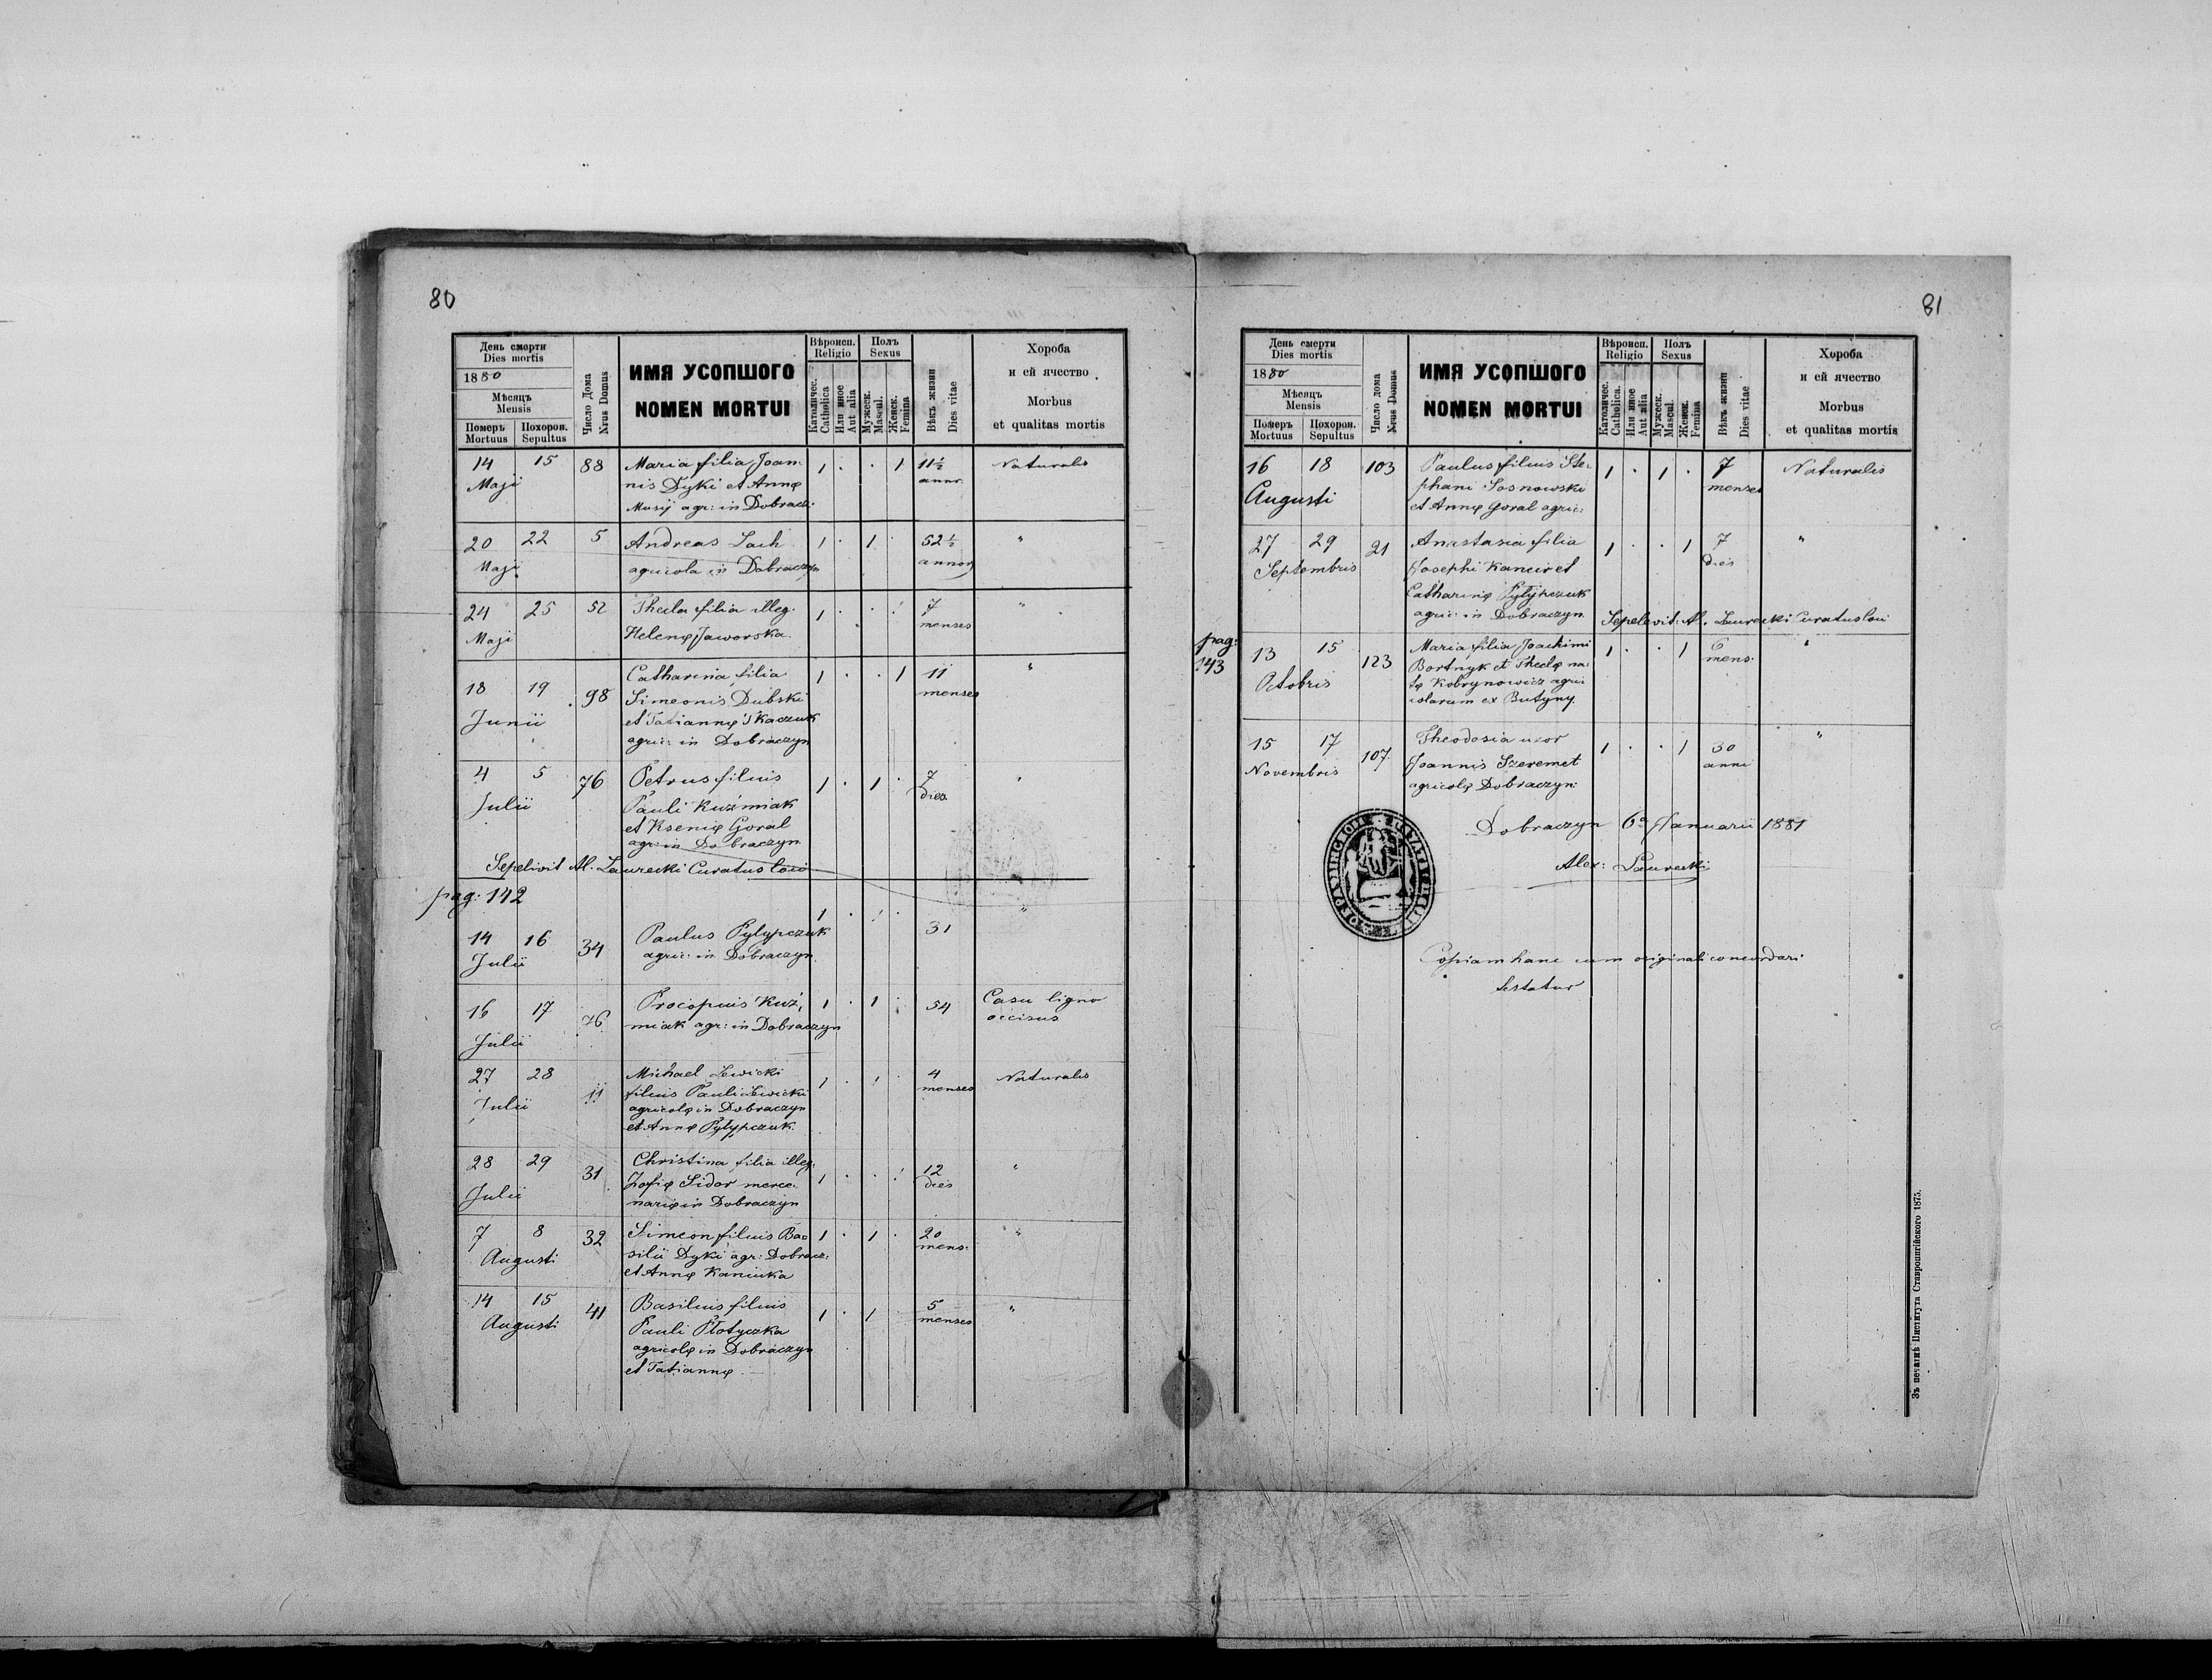 80
День смерти
Dies mortis
1880
Мѣсяцъ
Mensis
Померъ
Mortuus
Похорон.
Sepultus
Число Дома
Nrus Domus
ИМЯ УСОПШОГО
NOMEN MORTUI
Вѣроисп.
Religio
Католичес.
Catholica
Или иное
Aut alia
Полъ
Sexus
Мужеск.
Mascul.
Женск.
Femina
Вѣкъ жизни
Dies vitae
Хороба
и ей ячество
Morbus
et qualitas mortis
14 15 88 Maria filia Joan- 1 . . 1 11½ Naturalis
Maji nis Dyki et Annę annor.
Musij agr: in Dobracz:
20 22 5 Andreas Lach 1 . 1 . 52½ "
Maji agricola in Dobraczyn annor
24 25 52 Thecla filia illeg. 1 . . 1 7 "
Maji Helenę Jaworska menses
18 19 98 Catharina filia 1 . . 1 11 "
Junii Simeonis Dubski menses
et Tatiannę Tkaczuk
agric: in Dobraczyn
4 5 76 Petrus filius 1 . 1 . 7 "
Julii Pauli Kuźmiak dies
et Ksenię Goral
agr: in Dobraczyn
Sepelivit Al. Laurecki Curatus loci
pag: 142
14 16 34 Paulus Pylypczuk 1 . 1 . 31 "
Julii agric: in Dobraczyn
16 17 76 Procopius Kuź, 1 . 1 . 54 Casu ligno
Julii miak agr: in Dobraczyn occisus
27 28 11 Michael Lewicki 1 . 1 . 4 Naturalis
Julii filius Pauli Lewicki menses
agricolę in Dobraczyn
et Annę Pylypczuk.
28 29 31 Christina filia illeg. 1 . . 1 12 "
Julii Zofię Sidor merce- dies
narię in Dobraczyn
7 8 32 Simeon filius Ba- 1 . 1 . 20 "
Augusti silii Dyki agr: Dobracz: mens:
et Annę Kaniuka
14 15 41 Basilius filius 1 . 1 5 "
Augusti Pauli Płotyczka menses
agricolę in Dobraczyn
et Tatiannę
81
День смерти
Dies mortis
1880
Мѣсяцъ
Mensis
Померъ
Mortuus
Похорон.
Sepultus
Число дома
Nrus Domus
ИМЯ УСОПШОГО
NOMEN MORTUI
Вѣроисп.
Religio
Католичес.
Catholica.
Или иное
Aut alia
Полъ
Sexus
Мужеск.
Mascul.
Женск.
Femina
Вѣкъ жизни
Dies vitae
Хороба
и ей ячество
Morbus
et qualitas mortis
16 18 103 Paulus filius Ste- 1 . 1 . 7 Naturalis
Augusti phani Sosnowski menses
et Annę Goral agric:
27 29 21 Anastasia filia 1 . . 1 7 "
Septembris Josephi Kaniur et dies
Catharinę Pylypczuk
agric: in Dobraczyn. Sepelevit: Al. Laurecki Curatus loci
pag:
143
13 15 123 Maria filia Joachimi 1 . . 1 6 "
Octobris Bortnyk et Theclę na- mens:
tę Kobrynowicz agri
colarum ex Butyny.
15 17 107 Theodosia uxor 1 . . 1 30 "
Novembris Joannis Szeremet anni
agricolę Dobraczyn:
Dobraczyn 6a Januarii 1881
Alex: Laurecki
Copiam hanc cum originali concordari
testatur
Зъ печатнѣ Института Ставропигійского 1875.